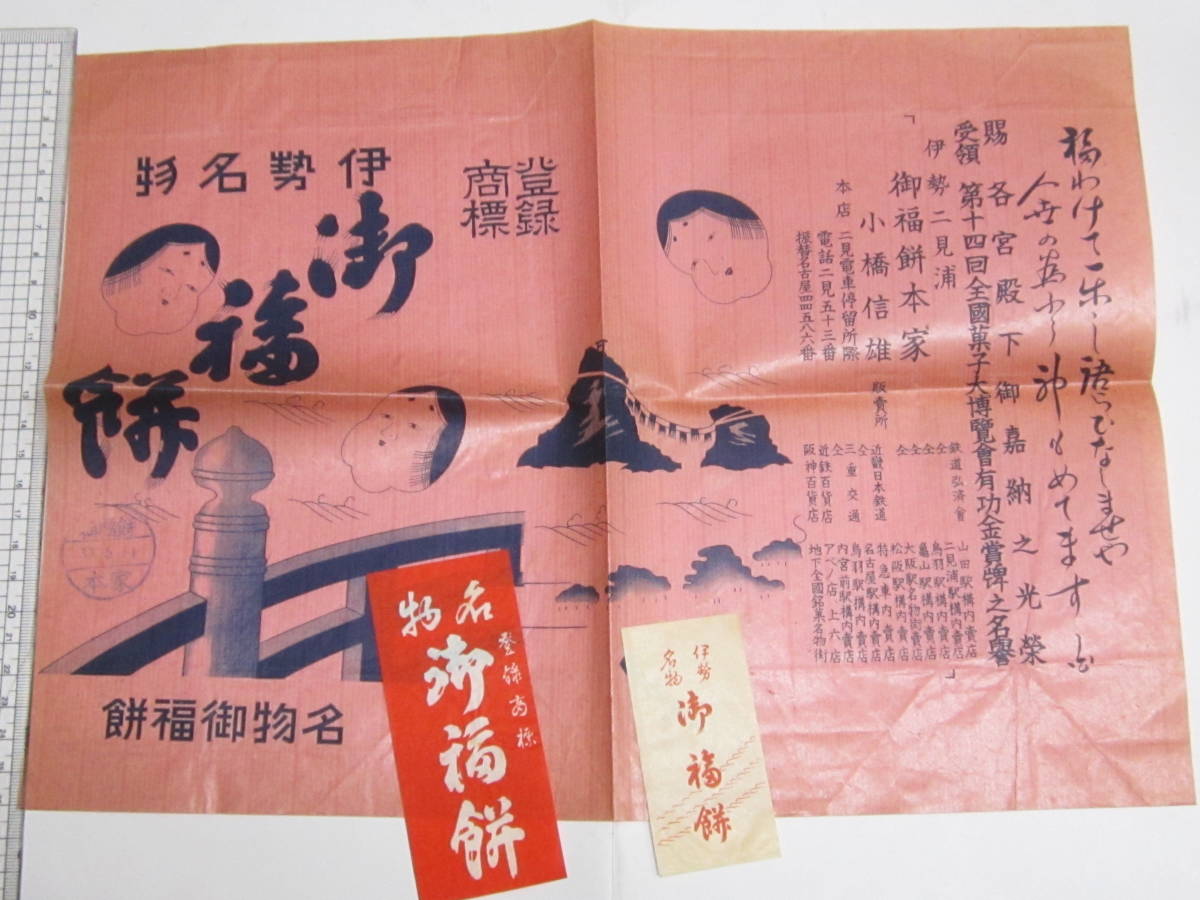 賜 各宮殿下御嘉納之光榮
受領 第十四回全國菓子大博覽會有功金賞牌之名譽
伊勢二見浦
御福餅本家
小橋信雄
本店 二見電車停留所際
電話二見五十三番
振替名古屋四四五八六番
販賣所
鉄道弘済會 山田駅構内賣店
仝 二見浦駅構内賣店
仝 鳥羽駅構内賣店
仝 亀山駅構内賣店
仝 大阪駅名物街賣店
仝 松阪駅構内賣店
近畿日本鉄道 特急車内賣店
仝 名古屋駅構内賣店
三重交通 鳥羽駅構内賣店
仝 内宮前駅構内賣店
近鉄百貨店 アベノ店 上六店
阪神百貨店 地下全國銘菓名物街
登録
商標
伊勢名物
御福餅
名物御福餅
本家
登録商標
名物
御福餅
伊勢
名物
御福餅